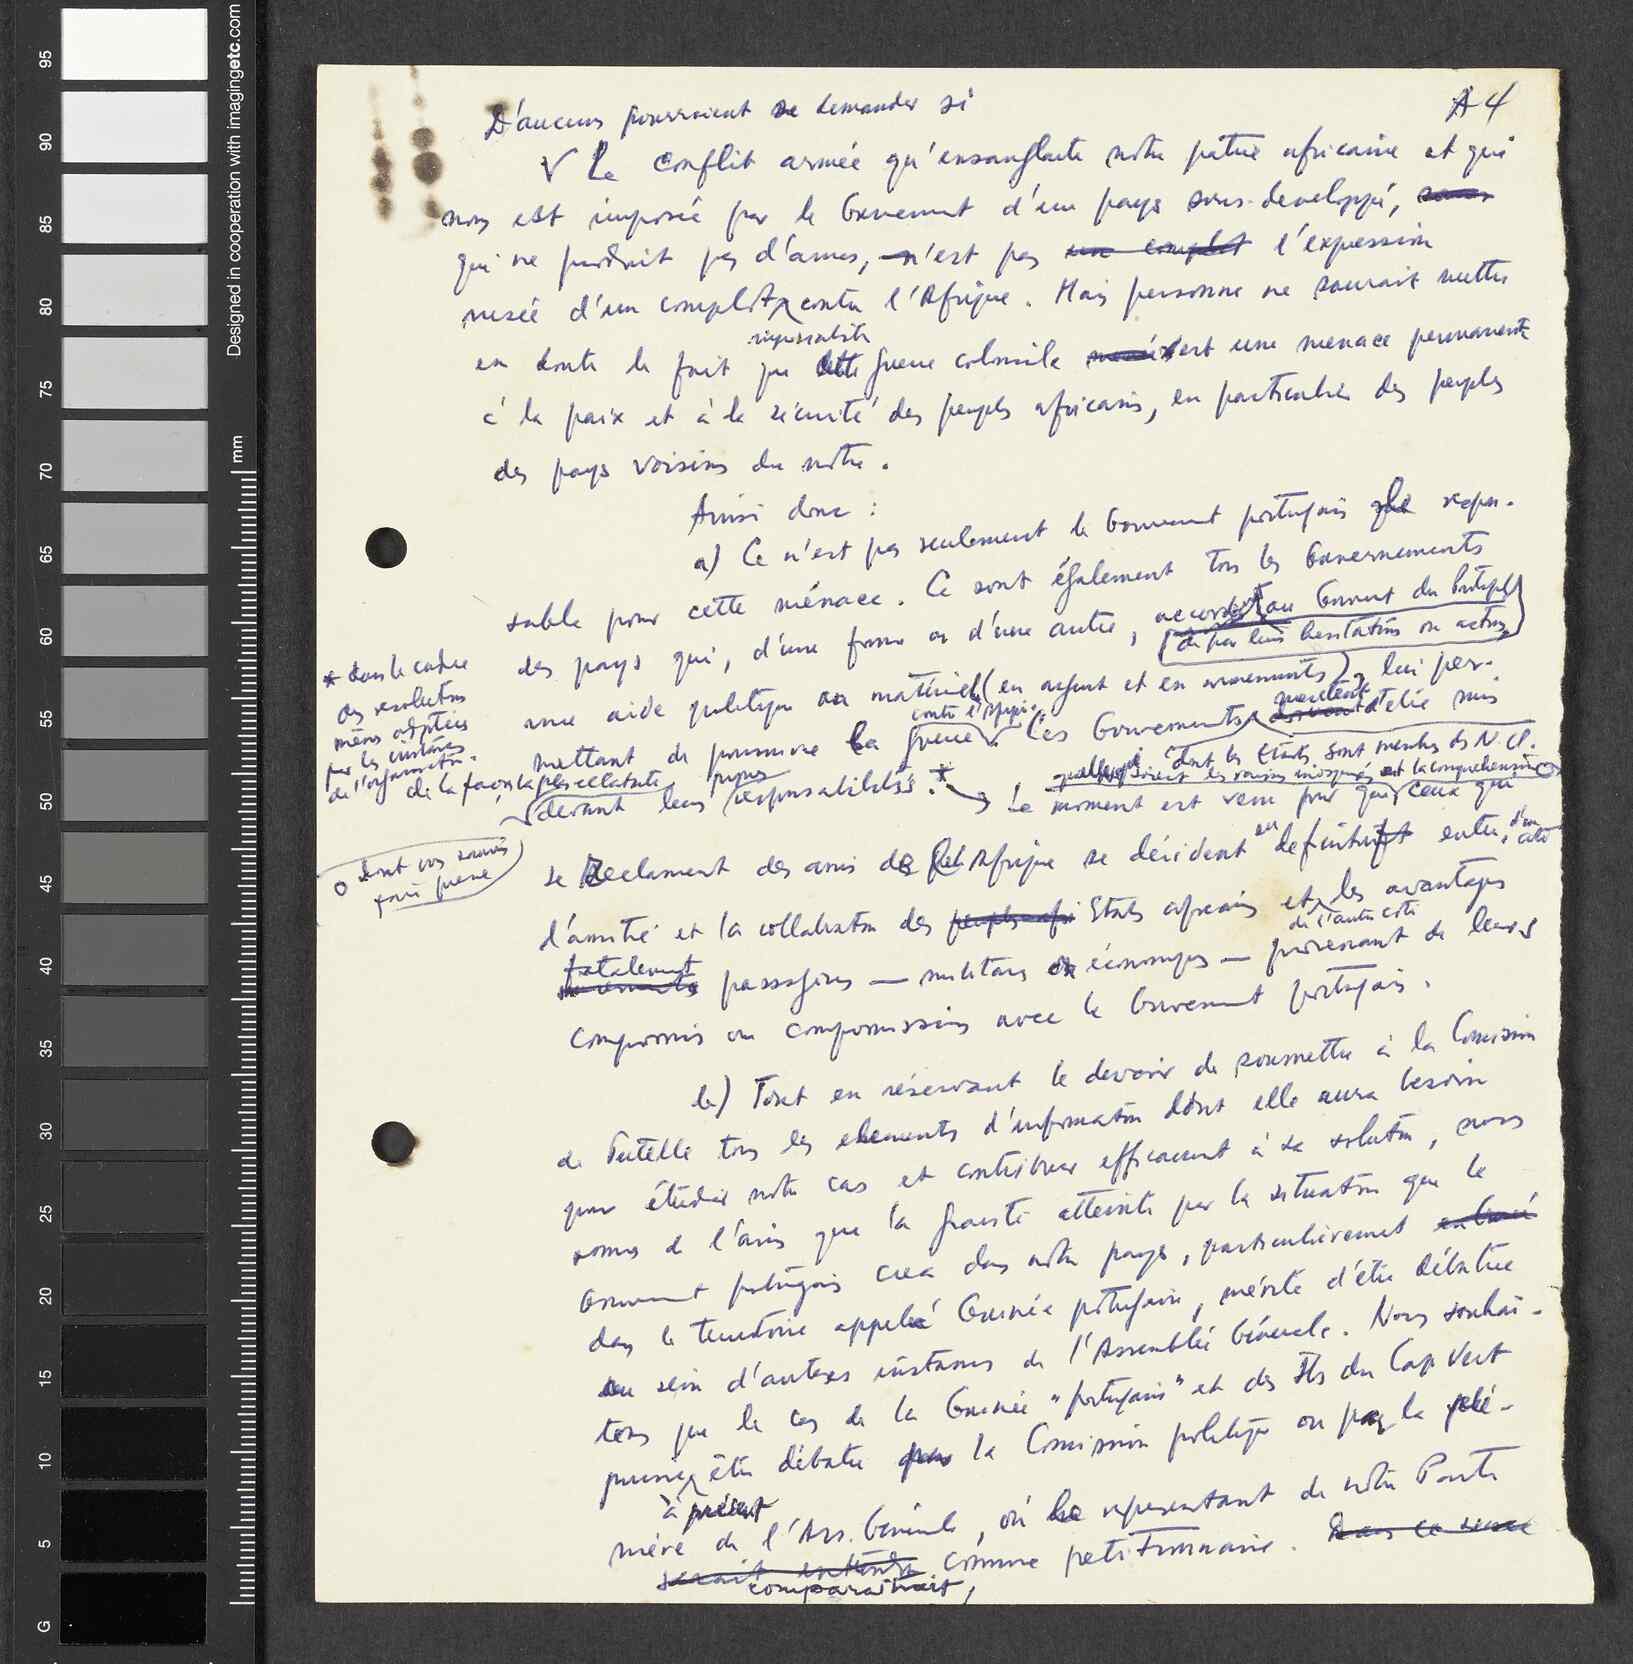 A 4
D'aucuns pourraient se demander si
Le conflit armée qu'ensanglante notre patrie africaine et qui
nous est imposée par le Gouvernement d'un pays sous-developpé,
qui ne produit pas d'armes, n'est pas un complot l'expression
rusée d'un complot contre l'Afrique. Mais personne ne saurait mettre
impérialiste
en doute le fait que cette guerre coloniale est une menace permanente
à la paix et à la sécurité des peuples africains, en particulier des peuples
des pays voisins du notre.
Ainsi donc :
a) Ce n'est pas seulement le Gouvernement portugais le respon-
sable pour cette ménace. Ce sont également tous les Gouvernements
des pays qui, d'une forme ou d'une autre, accordent au Gouvernement du Portugal
de par leurs hesitations ou actions,
une aide politique ou matériel (en argent et en armements), lui per-
contre l'Afrique
mettant de poursuivre la guerre. Ces Gouvernements méritent d'etre mis
de la façon la plus eclatante
propres
devant leurs responsabilités. * Le moment est venu pour que ceux qui
quelles que soient les raisons invoquées et la comprehension
dont les Etats sont membres des N.U.
* dans le cadre
des resolutions
mêmes adoptées
par les instances
de l'organisation.
dont vous saurez
faire preuve
se Reclament des amis de l'Afrique se décident definitif entre, d'un coté
l'amitié et la collaboration des peuples afri Etats africains et les avantages
de l'autre coté
fatalement passagères — militaires ou économiques — provenant de leurs
compromis ou compromissions avec le Gouvernement portugais.
b) Tout en réservant le devoir de soumettre à la Comission
de Tutelle tous les elements d'information dont elle aura besoin
pour étudier notre cas et contribuer efficacement à sa solution, nous
somes de l'avis que la gravité atteinte par la situation que le
Gouvernement portugais crea dans notre pays, particulièrement
dans le territoire appelé Guinée portugaise, mérite d'être débattue
au sein d'autres instances de l'Assemblée Générale. Nous souhai-
tons que le cas de la Guinée "portugaise" et des Iles du Cap Vert
puisse être débatue par la Comission politique ou par la plé-
à présent
nière de l'Ass. Générale, où le representant de notre Parti
serait entendu comme petitionnaire. Dans ce sens
comparaitrait,